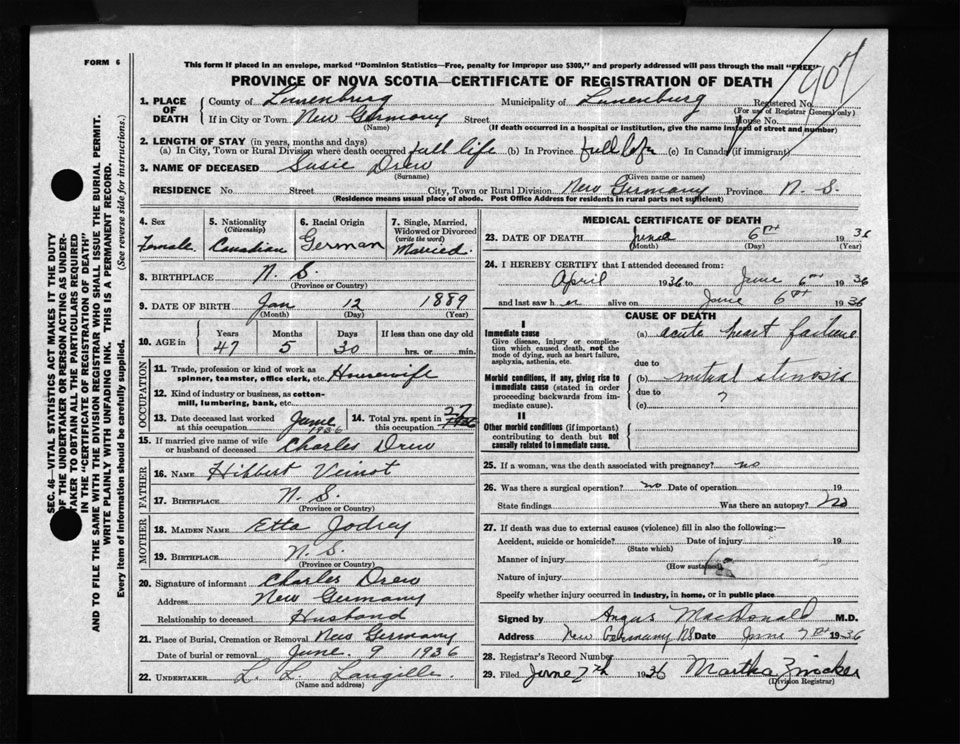 FORM 6
This form if placed in an envelope, marked "Dominion Statistics—Free, penalty for improper use $300," and properly addressed will pass through the mail "FREE"
PROVINCE OF NOVA SCOTIA—CERTIFICATE OF REGISTRATION OF DEATH
907
SEC. 46—VITAL STATISTICS ACT MAKES IT THE DUTY
OF THE UNDERTAKER OR PERSON ACTING AS UNDER-
TAKER TO OBTAIN ALL THE PARTICULARS REQUIRED
IN THE "CERTIFICATE OF REGISTRATION OF DEATH"
AND TO FILE THE SAME WITH THE DIVISION REGISTRAR WHO SHALL ISSUE THE BURIAL PERMIT.
WRITE PLAINLY WITH UNFADING INK. THIS IS A PERMANENT RECORD.
Every item of information should be carefully supplied. (See reverse side for instructions.)
1. PLACE OF DEATH
County of Lunenburg Municipality of Lunenburg Registered No.
(For use of Registrar General only)
If in City or Town New Germany Street House No.
(Name) (If death occurred in a hospital or institution, give the name instead of street and number)
2. LENGTH OF STAY (in years, months and days)
(a) In City, Town or Rural Division where death occurred full life (b) In Province full life (c) In Canada (if immigrant)
3. NAME OF DECEASED Susie Drew
(Surname) (Given name or names)
RESIDENCE No. Street City, Town or Rural Division New Germany Province N. S.
(Residence means usual place of abode. Post Office Address for residents in rural parts not sufficient)
4. Sex Female
5. Nationality (Citizenship) Canadian
6. Racial Origin German
7. Single, Married, Widowed or Divorced (write the word) Married
8. BIRTHPLACE N. S.
(Province or Country)
9. DATE OF BIRTH Jan 12 1889
(Month) (Day) (Year)
10. AGE in Years Months Days If less than one day old
47 5 30 hrs. or min.
OCCUPATION
11. Trade, profession or kind of work as
spinner, teamster, office clerk, etc. Housewife
12. Kind of industry or business, as cotton-
mill, lumbering, bank, etc.
13. Date deceased last worked
at this occupation June 1936
14. Total yrs. spent in
this occupation 27
15. If married give name of wife
or husband of deceased Charles Drew
FATHER
16. NAME Hibbert Veinot
17. BIRTHPLACE N. S.
(Province or Country)
MOTHER
18. MAIDEN NAME Etta Jodrey
19. BIRTHPLACE N. S.
(Province or Country)
20. Signature of informant Charles Drew
Address New Germany
Relationship to deceased Husband
21. Place of Burial, Cremation or Removal New Germany
Date of burial or removal June. 9 1936
22. UNDERTAKER L. L. Langille.
(Name and address)
MEDICAL CERTIFICATE OF DEATH
23. DATE OF DEATH June 6th 1936
(Month) (Day) (Year)
24. I HEREBY CERTIFY that I attended deceased from:
April 1936 to June 6th 1936
and last saw her alive on June 6th 1936
CAUSE OF DEATH
I
Immediate cause
Give disease, injury or complica-
tion which caused death, not the
mode of dying, such as heart failure,
asphyxia, asthenia, etc.
(a) acute heart failure
due to
Morbid conditions, if any, giving rise to
immediate cause (stated in order
proceeding backwards from im-
mediate cause).
(b) mitral stenosis
due to ?
(c)
II
Other morbid conditions (if important)
contributing to death but not
causally related to immediate cause.
25. If a woman, was the death associated with pregnancy? no
26. Was there a surgical operation? no Date of operation 19
State findings Was there an autopsy? No
27. If death was due to external causes (violence) fill in also the following:—
Accident, suicide or homicide? Date of injury 19
(State which)
Manner of injury
(How sustained)
Nature of injury
Specify whether injury occurred in industry, in home, or in public place
Signed by Angus MacDonald M.D.
Address New Germany NS Date June 7th 1936
28. Registrar's Record Number
29. Filed June 7th 1936 Martha Zwicker
(Division Registrar)